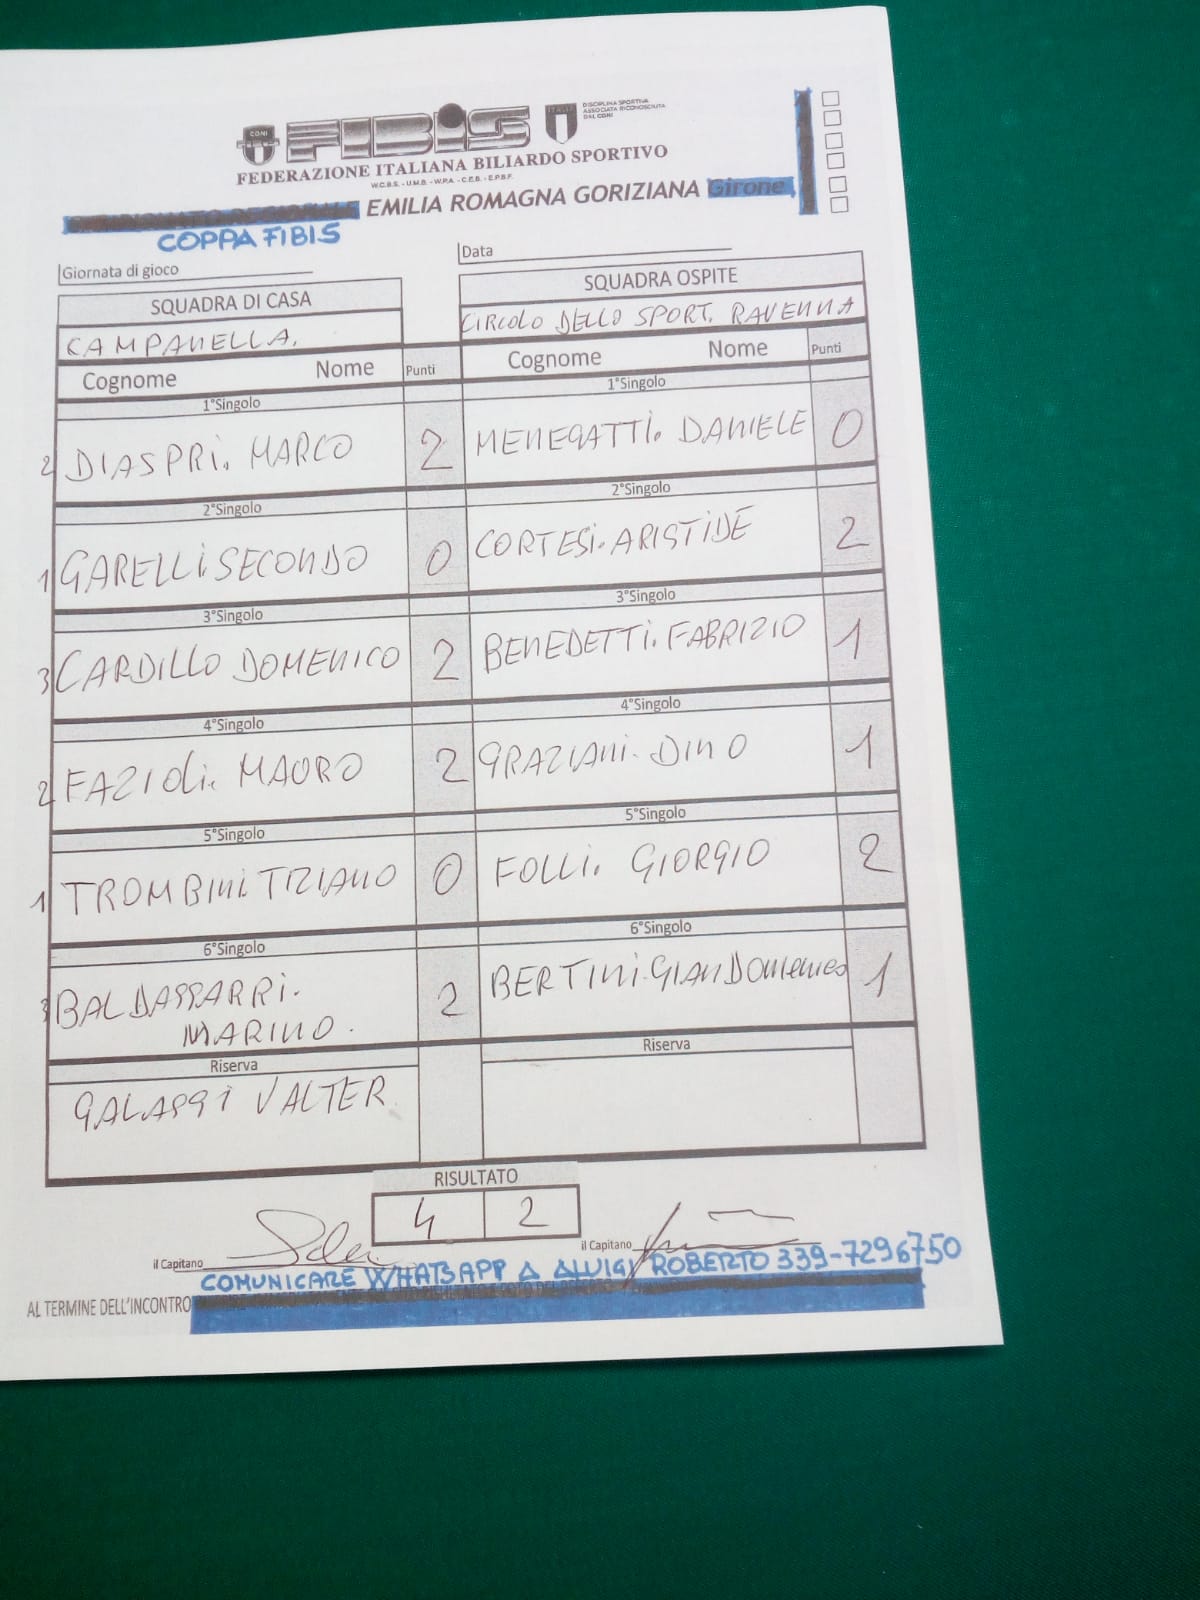 CONI
FIBIS
ITALIA
DISCIPLINA SPORTIVA
ASSOCIATA RICONOSCIUTA
DAL CONI
FEDERAZIONE ITALIANA BILIARDO SPORTIVO
W.C.B.S. - U.M.B. - W.P.A. - C.E.B. - E.P.B.F.
EMILIA ROMAGNA GORIZIANA Girone
COPPA FIBIS
Giornata di gioco
Data
SQUADRA DI CASA
SQUADRA OSPITE
CAMPANELLA.
CIRCOLO DELLO SPORT. RAVENNA
Cognome Nome Punti
Cognome Nome Punti
1°Singolo
1°Singolo
2 DIASPRI. MARCO 2
MENEGATTI. DANIELE 0
2°Singolo
2°Singolo
1 GARELLI SECONDO 0
CORTESI. ARISTIDE 2
3°Singolo
3°Singolo
3 CARDILLO DOMENICO 2
BENEDETTI. FABRIZIO 1
4°Singolo
4°Singolo
2 FAZIOLI. MAURO 2
GRAZIANI. DINO 1
5°Singolo
5°Singolo
1 TROMBINI TIZIANO 0
FOLLI. GIORGIO 2
6°Singolo
6°Singolo
3 BALDASSARRI. 2
MARINO.
BERTINI. GIAN DOMENICO 1
Riserva
Riserva
GALASSI VALTER
RISULTATO
4 2
il Capitano
il Capitano
COMUNICARE WHATSAPP A ALUIGI ROBERTO 339-7296750
AL TERMINE DELL'INCONTRO